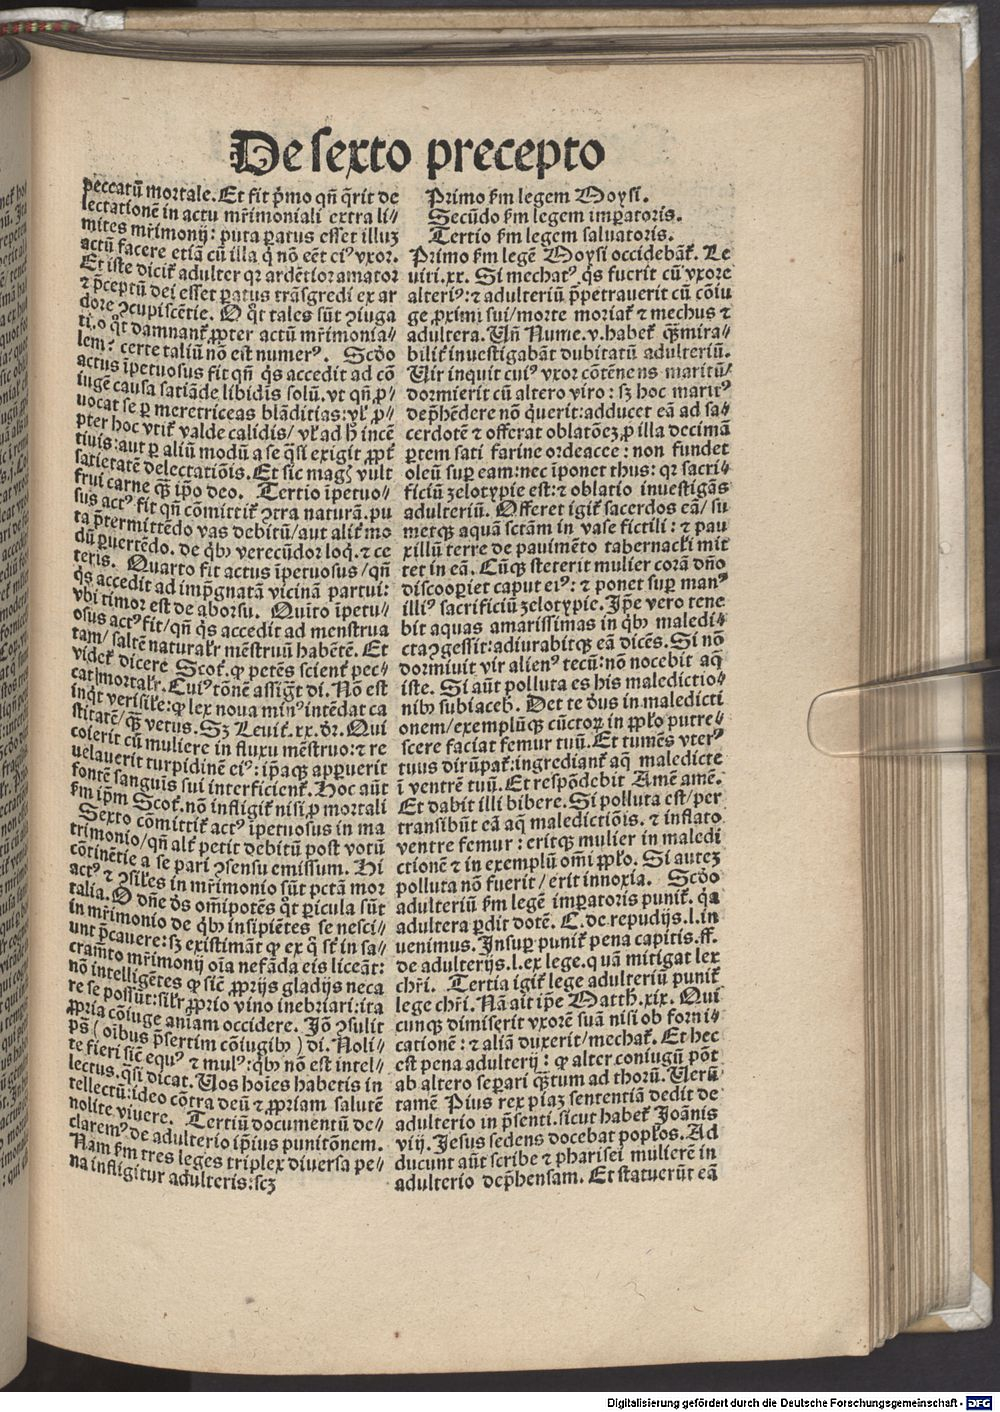 De sexto precepto
peccatũ mortale. Et fit p̃mo qñ q̃rit de
lectationẽ in actu mr̃imoniali extra li⸗
mites mr̃imonij: puta ꝑatus esset illuȝ
actũ facere etiã cũ illa q̃ nõ eẽt eiꝰ vxor.
Et iste dicit̃ adulter qꝛ ardẽtior amator
⁊ p̃ceptũ dei esset ꝑatus trãsgredi ex ar
dore ꝯcupiscẽtie. O q̊t tales sũt ꝯiuga
ti. o q̊t damnant̃ ꝓpter actũ mr̃imonia⸗
lem? certe taliũ nõ est numerꝰ. Scd̃o
actus ĩpetuosus fit qñ q̃s accedit ad cõ
iugẽ causa satiãde libidĩs solũ. vt qñ ꝓ⸗
uocat se ꝑ meretriceas blãditias: vl̃ ꝓ⸗
pter hoc vtit̃ valde calidis / vl̃ ad h̃ incẽ
tiuis: aut ꝑ aliũ modũ a se q̃si exigit ꝓpt̃
satietatẽ delectatiõis. Et sic mag̃ vult
frui carne q̃ ip̃o deo. Tertio ĩpetuo⸗
sus actꝰ fit qñ cõmittit̃ ꝯtra naturã. pu
ta p̃termittẽdo vas debitũ / aut alit̃ mo
dũ ꝑuertẽdo. de q̃bꝰ verecũdor loq̃. ⁊ ce
teris. Quarto fit actus ĩpetuosus / qñ
q̃s accedit ad imp̃gnatã vicinã partui:
vbi timor est de aborsu. Quĩto ĩpetu⸗
osus actꝰ fit / qñ q̃s accedit ad menstrua
tam / saltẽ naturalr̃ mẽstruũ habẽtẽ. Et
videt̃ dicere Scot̃. ꝙ petẽs scient̃ pec⸗
cat mortalr̃. Cuiꝰ rõnẽ assig̃t di. Nõ est
inq̃t verisil̃e: ꝙ lex noua minꝰ intẽdat ca
stitatẽ / q̃ vetus. Sȝ Leuit̃. xx. dr̃. Qui
coierit cũ muliere in fluxu mẽstruo: ⁊ re
uelauerit turpidinẽ eiꝰ: ip̃aqꝫ apꝑuerit
fontẽ sanguĩs sui interficient̃. Hoc aũt
ẜm ip̃m Scot̃. nõ infligit̃ nisi ꝓ mortali
Sexto cõmittit̃ actꝰ ĩpetuosus in ma
trimonio / qñ alt̃ petit debitũ post votũ
cõtinẽtie a se pari ꝯsensu emissum. Hi
actꝰ ⁊ ꝯsil̃es in mr̃imonio sũt pctã mor
talia. O dñe ds̃ om̃ipotẽs q̊t ꝑicula sũt
in mr̃imonio de q̃bꝰ insipiẽtes se nesci⸗
unt p̃cauere: sȝ existimãt ꝙ ex q̃ st̃ in sa⸗
cram̃to mr̃imonij oĩa nefãda eis liceãt:
nõ intelligẽtes ꝙ sic̃ ꝓprijs gladijs neca
re se possũt: silr̃ ꝓprio vino inebriari: ita
ꝓpria cõiuge aniam occidere. Jõ ꝯsulit
ps̃ (oĩbus p̃sertim cõiugibꝰ) di. Noli⸗
te fieri sic̃ equꝰ ⁊ mulꝰ: q̃bꝰ nõ est intel⸗
lectus. q̃si dicat. Vos hoĩes habetis in
tellectũ: ideo cõtra deũ ⁊ ꝓpriam salutẽ
nolite viuere. Tertiũ documentũ de⸗
claremꝰ de adulterio ip̃ius punitõnem.
Nam ẜm tres leges triplex diuersa pe⸗
na infligitur adulteris: scȝ
Primo ẜm legem Moysi.
Secũdo ẜm legem imꝑatoris.
Tertio ẜm legem saluatoris.
Primo ẜm legẽ Moysi occidebãt̃. Le
uiti. xx. Si mechatꝰ q̃s fuerit cũ vxore
alteriꝰ: ⁊ adulteriũ p̃petrauerit cũ cõiu
ge ꝓximi sui / morte moriat̃ ⁊ mechus ⁊
adultera. Vñ Nume. v. habet̃ q̃mira⸗
bilit̃ inuestigabãt dubitatũ adulteriũ.
Vir inquit cuiꝰ vxor cõtẽnens maritũ /
dormierit cũ altero viro: sȝ hoc maritꝰ
dep̃hẽdere nõ q̃uerit: adducet eã ad sa⸗
cerdotẽ ⁊ offerat oblatõeȝ ꝓ illa decimã
ꝑtem sati farine ordeacee: non fundet
oleũ suꝑ eam: nec ĩponet thus: qꝛ sacri⸗
ficiũ zelotypie est: ⁊ oblatio inuestigãs
adulteriũ. Offeret igit̃ sacerdos eã / su
metqꝫ aquã sctãm in vase fictili: ⁊ pau
xillũ terre de pauimẽto tabernacl̃i mit
tet in eã. Cũqꝫ steterit mulier corã dño
discooꝑiet caput eiꝰ: ⁊ ponet suꝑ manꝰ
illiꝰ sacrificiũ zelotypie. Ip̃e vero tene
bit aquas amarissimas in q̃bꝰ maledi⸗
cta ꝯgessit: adiurabitqꝫ eã dicẽs. Si nõ
dormiuit vir alienꝰ tecũ: nõ nocebit aq̃
iste. Si aũt polluta es his maledictio⸗
nibꝰ subiaceb̃. Det te dñs in maledicti
onem / exemplũqꝫ cũctoꝝ in ppl̃o putre⸗
scere faciat femur tuũ. Et tumẽs vterꝰ
tuus dirũpat̃: ingrediant̃ aq̃ maledicte
ĩ ventrẽ tuũ. Et respõdebit Amẽ amẽ.
Et dabit illi bibere. Si polluta est / per
transibũt eã aq̃ maledictiõis. ⁊ inflato
ventre femur: eritqꝫ mulier in maledi
ctionẽ ⁊ in exemplũ om̃i ppl̃o. Si auteȝ
polluta nõ fuerit / erit innoxia. Scd̃o
adulteriũ ẜm legẽ imꝑatoris punit̃. q̃a
adultera ꝑdit dotẽ. C. de repudijs. l. in
uenimus. Insuꝑ punit̃ pena capitis. ff.
de adulterijs. l. ex lege. quã mitigat lex
chr̃i. Tertia igit̃ lege adulteriũ punit̃
lege chr̃i. Nã ait ip̃e Matth̃. xix. Qui
cunqꝫ dimiserit vxorẽ suã nisi ob forni⸗
cationẽ: ⁊ aliã duxerit / mechat̃. Et hec
est pena adulterij: ꝙ alter coniugũ põt
ab altero seꝑari q̃tum ad thorũ. Verũ
tamẽ Pius rex piaȝ sententiã dedit de
adulterio in p̃senti. sicut habet̃ Joãnis
viij. Jesus sedens docebat popl̃os. Ad
ducunt aũt scribe ⁊ pharisei mulierẽ in
adulterio dep̃hensam. Et statuerũt eã
Digitalisierung gefördert durch die Deutsche Forschungsgemeinschaft - DFG